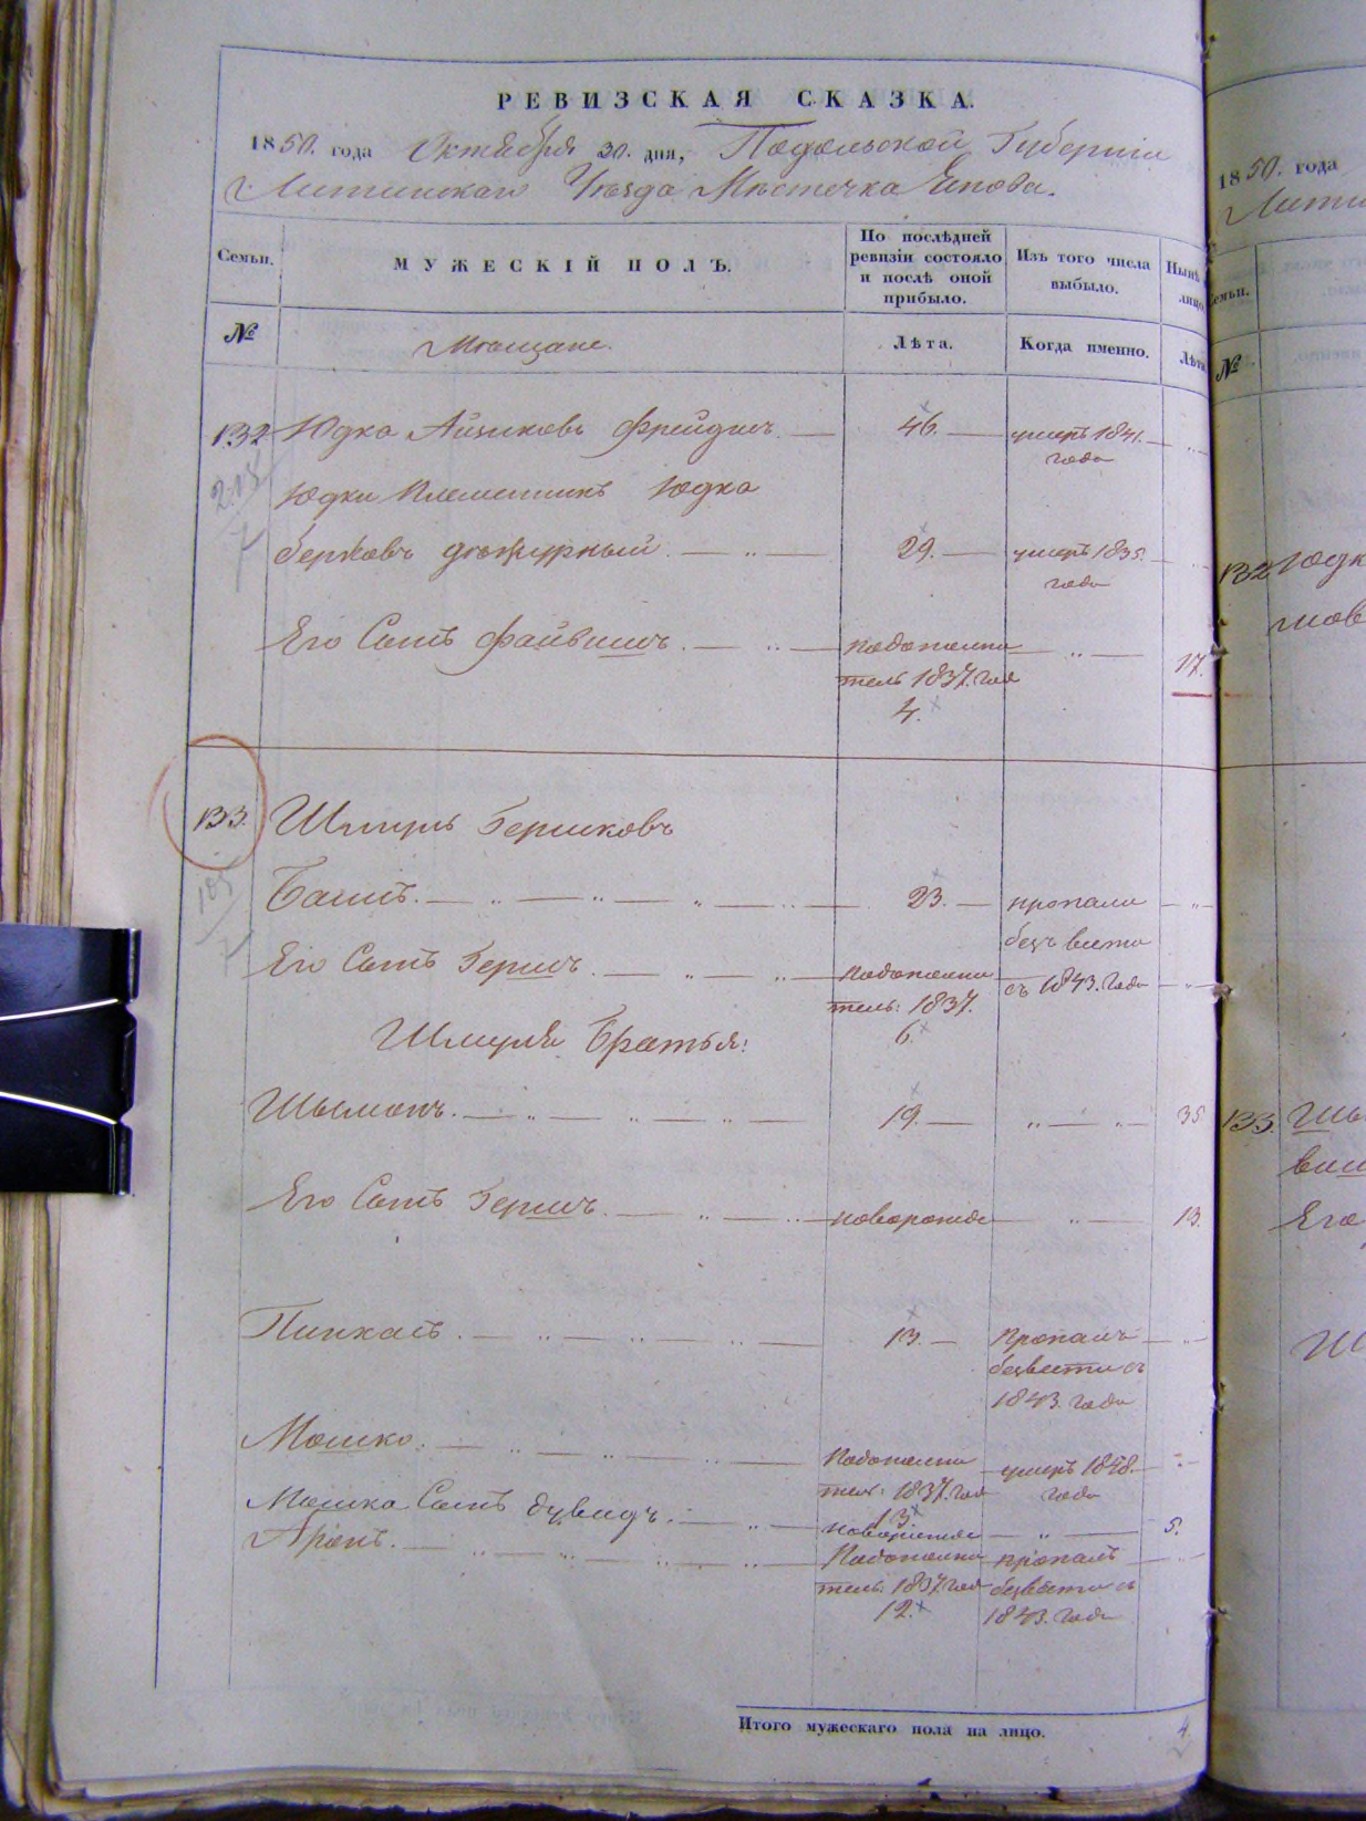 РЕВИЗСКАЯ СКАЗКА.
1850. года Октября 30. дня, Подольской Губернии
Литинскаго Уезда Мѣстечка Янова.
Семьи. МУЖЕСКІЙ ПОЛЪ. По послѣдней ревизіи состояло и послѣ оной прибыло. Изъ того числа выбыло. Нынѣ лицо
№ Мѣщане. Лѣта. Когда именно. Лѣта
132 Юдко Айзиковъ Фрейдисъ. 46. умеръ 1841.
года
218
7
Юдки племенникъ Юдко
Берковъ дежурный. 29. умеръ 1835.
года
Его Сынъ Файвишъ. подополни
тель 1837. года 17.
4.
133. Шмуль Гершковъ
105
7
Башъ. 23. пропали
безъ вести
Его Сынъ Гершъ. подополни съ 1843. года
тель: 1837.
6.
Шмуля Братья:
Шымонъ. 19. 35
Его Сынъ Гершъ. новорожде 13.
Пинкасъ. 13. пропалъ
безвести съ
1843. года
Мошко. подополни умеръ 1848.
тель: 1837. года года
13
Мошка Сынъ Дувидъ. новорожде 5.
Аронъ. подополни пропалъ
тель: 1837. года безвести съ
12. 1843. года
Итого мужескаго пола на лицо. 4.
1850. года
Лити
Семьи.
№
132 Юдк
133. Шы
Его